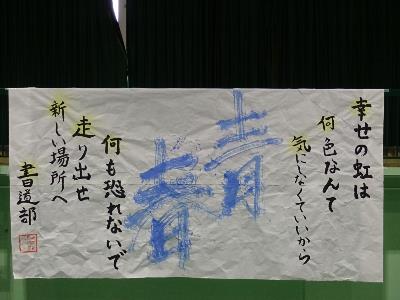 幸せの虹は
何色なんて
気にしなくていいから
青春
何も恐れないで
走り出せ
新しい場所へ
書道部